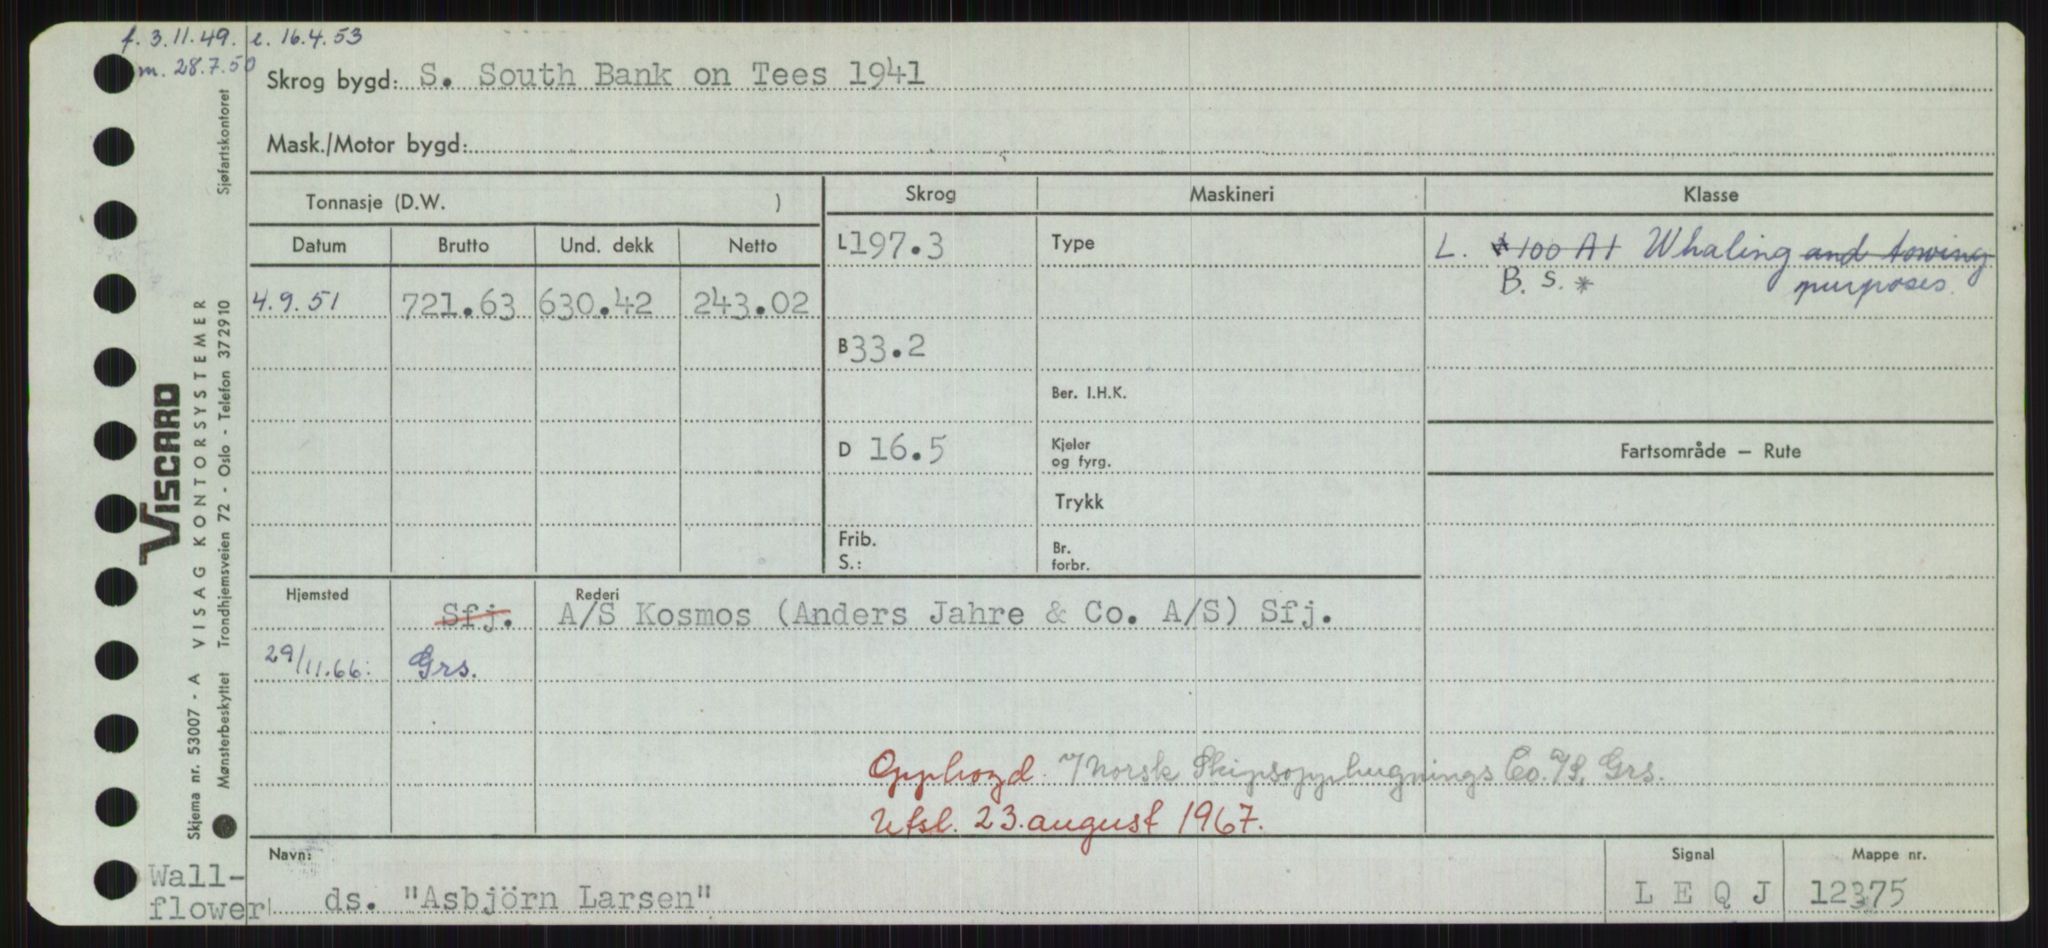 f. 3.11.49. e. 16.4.53
m. 28.7.50
Skrog bygd: S. South Bank on Tees 1941
Mask./Motor bygd:
Tonnasje (D.W. )
Skrog
Maskineri
Klasse
Datum
Brutto
Und. dekk
Netto
L 197.3
Type
L. 100 A1 Whaling and towing
B. S. * purposes.
4.9.51 721.63 630.42 243.02
B 33.2
Ber. I.H.K.
D 16.5
Kjeler
og fyrg.
Fartsområde — Rute
Trykk
Frib.
S.:
Br.
forbr.
Hjemsted
Rederi
Sfj. A/S Kosmos (Anders Jahre & Co. A/S) Sfj.
29/11.66: Grs.
Opphogd. v/Norsk Skipsopphugnings Co. A/S, Grs.
Utsl. 23. august 1967.
Navn:
Signal
Mappe nr.
Wall-
flower
ds. "Asbjörn Larsen"
L E Q J
12375
Sjøfartskontoret
VISCARD
VISAG KONTORSYSTEMER
Trondhjemsveien 72 - Oslo - Telefon 372910
Skjema nr. 53007 - A
Mønsterbeskyttet